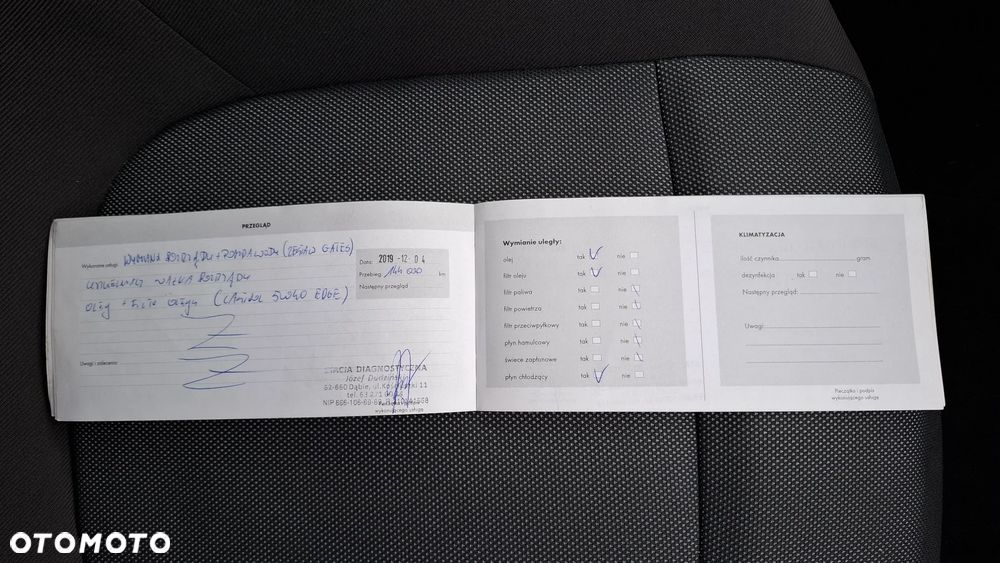 PRZEGLĄD
Wykonane usługi: WYMIANA ROZRZĄDU + POMPA WODY (ZESTAW GATES)
WAŁKA ROZRZĄDU
OLEJ + FILTR OLEJU (CASTROL 5W40 EDGE)
Data: 2019 -12- 04
Przebieg: 144 030 km
Następny przegląd:
Uwagi i zalecenia:
STACJA DIAGNOSTYCZNA
Józef
62-660 Dąbie, ul. Kościuszki 11
tel. 63 271
NIP 666-106-69-69
Pieczątka i podpis
wykonującego usługę
Wymianie uległy:
olej tak nie
filtr oleju tak nie
filtr paliwa tak nie
filtr powietrza tak nie
filtr przeciwpyłkowy tak nie
płyn hamulcowy tak nie
świece zapłonowe tak nie
płyn chłodzący tak nie
KLIMATYZACJA
ilość czynnika gram
dezynfekcja tak nie
Następny przegląd:
Uwagi:
Pieczątka i podpis
wykonującego usługę
OTOMOTO